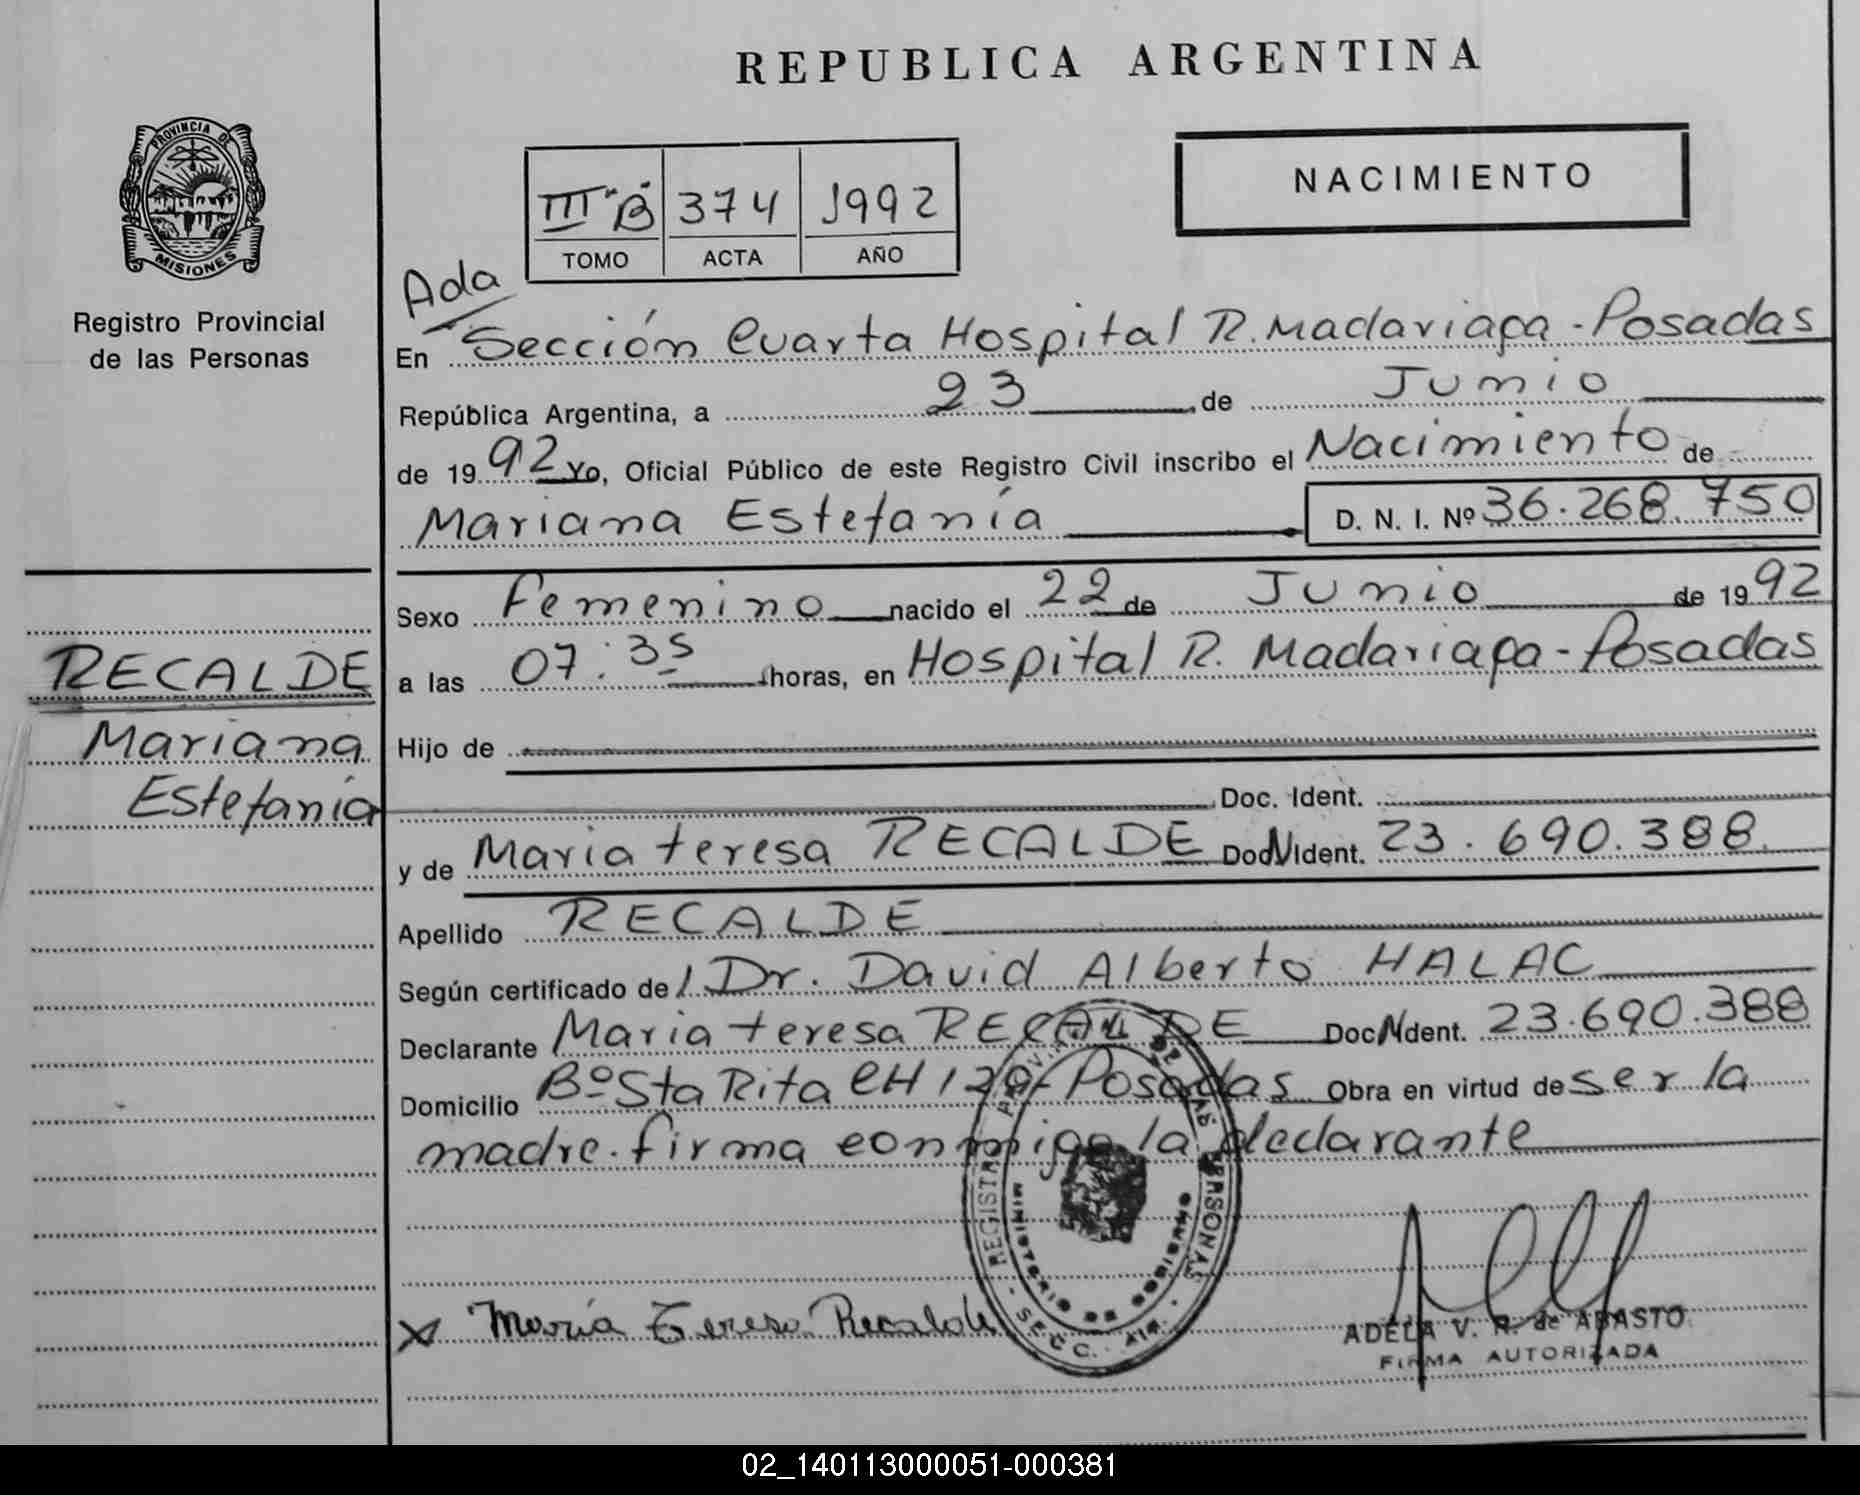 REPUBLICA ARGENTINA
PROVINCIA DE
MISIONES
Registro Provincial
de las Personas
NACIMIENTO
III "B" 374 1992
TOMO ACTA AÑO
Ada
En Sección Cuarta Hospital R. Madariaga - Posadas
República Argentina, a 23 de Junio
de 1992 Yo, Oficial Público de este Registro Civil inscribo el Nacimiento de
Mariana Estefanía D. N. I. Nº 36.268.750
Sexo Femenino nacido el 22 de Junio de 1992
RECALDE
Mariana
Estefanía
a las 07:35 horas, en Hospital R. Madariaga - Posadas
Hijo de
Doc. Ident.
y de Maria teresa RECALDE Doc N Ident. 23.690.388
Apellido RECALDE
Según certificado de Dr. David Alberto HALAC
Declarante Maria teresa RECALDE Doc N Ident. 23.690.388
Domicilio Bº Sta Rita CH 129 - Posadas Obra en virtud de ser la
madre. firma conmigo la declarante
PERSONAS
MINISTERIO DE GOBIERNO
SECC.
X María Teresa Recalde
ADELA V. R. de ABASTO
FIRMA AUTORIZADA
02_140113000051-000381